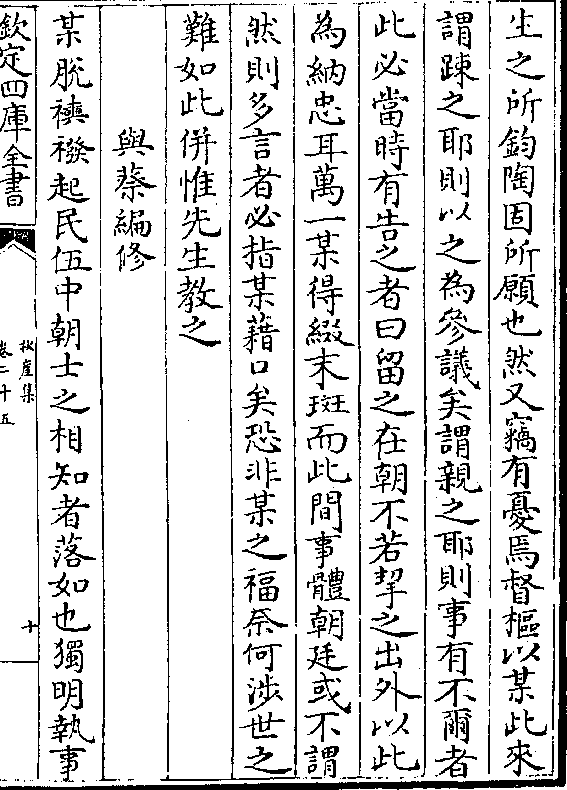 生之所鈞陶固所願也然又竊有憂焉督樞以某此來
謂踈之耶則以之為參議矣謂親之耶則事有不爾者
此必當時有告之者曰留之在朝不若挈之出外以此
為納忠耳萬一某得綴末班而此間事體朝廷或不謂
然則多言者必指某藉口矣恐非某之福奈何涉世之
難如此併惟先生教之
與蔡編修
某脫襏襫起民伍中朝士之相知者落如也獨明執事
欽定四庫全書
秋崖集
卷二十五
十